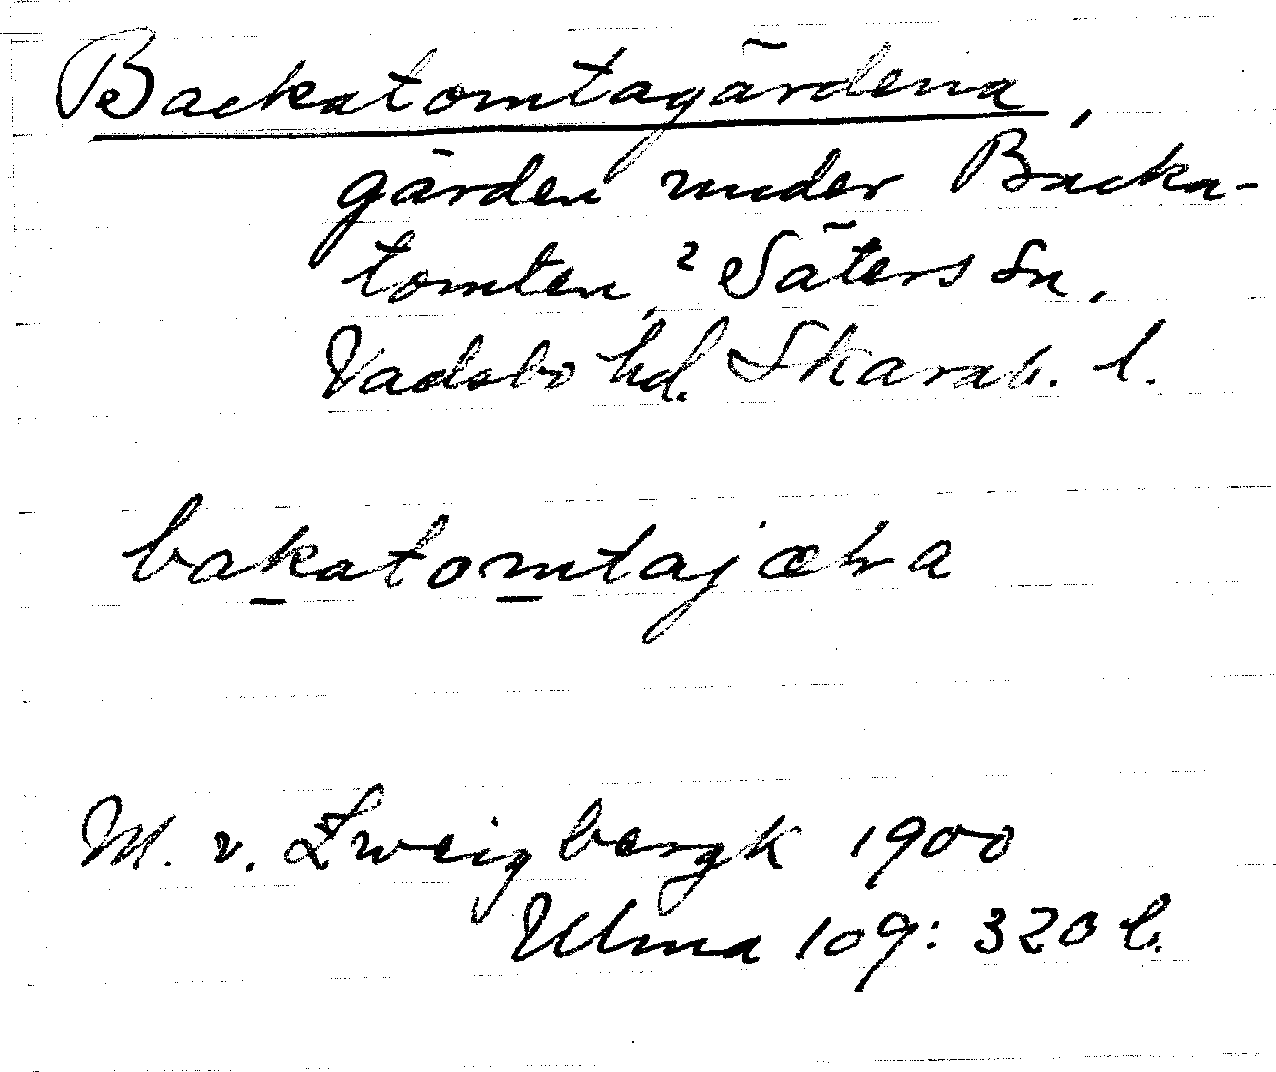 Backatomtagärdena,
gärden under Backa-
tomten, ? Säters sn,
Vadsbo hd. Skarab. l.
bakatomtajæṙa
M. v. Zweigbergk 1900
Ulma 109: 320 b.